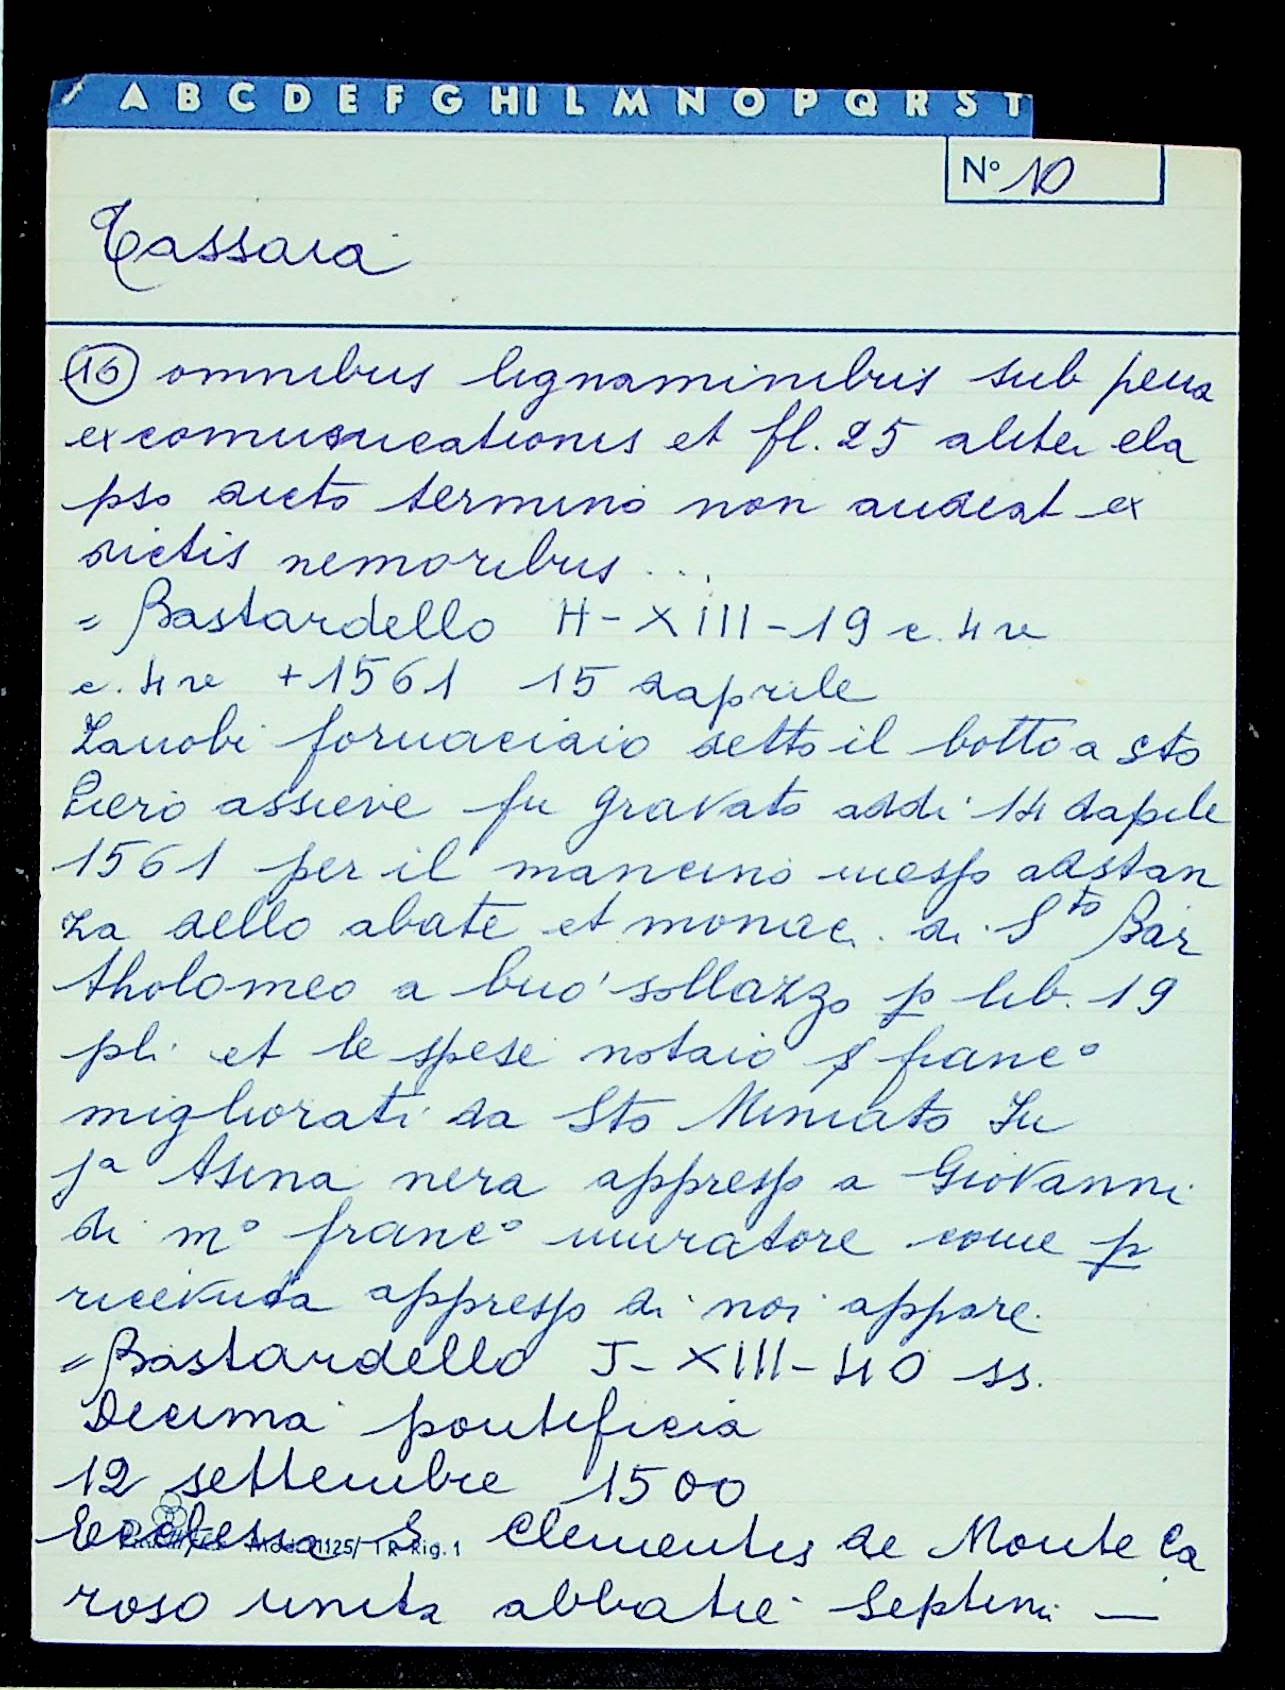 A B C D E F G HI L M N O P Q R S T
N° 10
Tassaia
16 omnibus lignaminibus sub pena
excomunicationis et fl. 25 aliter ela
pso dicto termino non audeat ex
dictis nemoribus ...
= Bastardello H-XIII-19 c. 4 v
c. 4 v + 1561 15 daprile
Zanobi fornaciaio detto il botto a Sto
Piero assieve fu gravato addi 14 daprile
1561 per il mancino messo adstan
za dello abate et monac. di Sto Bar
tholomeo a buo' sollazzo p lib. 19
pli et le spese notaio S franc°
migliorati da Sto Miniato In
ja Asina nera appresso a Giovanni
di m° franc° muratore come p
ricevuta appresso di noi appare.
= Bastardello J-XIII-40 ss.
Decima pontificia
12 settembre 1500
Ecclesia S Clementis de Monte Ca
roso unita abbatie Septimi —
Mod. 1125/ 1 R Rig. 1